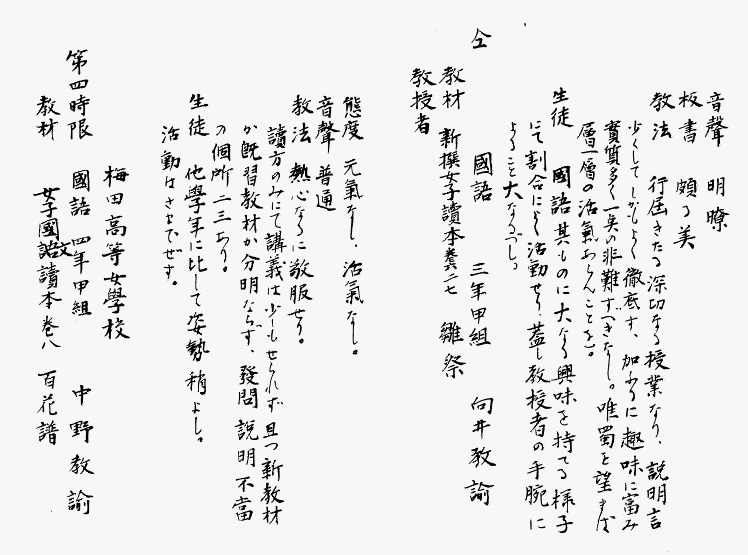 音聲　明瞭
板書　頗る美
教法　行屆きたる深切なる授業なり、説明言
少くしてしかもよく徹底す、加ふるに趣味に富み
實質多く一点の非難すべきなし。唯蜀を望まば
層一層の活氣あらんことを。
生徒　國語其ものに大なる興味を持てる樣子
にて割合によく活動せり、蓋し教授者の手腕に
よること大なるべし。
仝　國語　三年甲組　向井教諭
教材　新撰女子讀本巻二七　雛祭
教授者
態度　元氣なし、活氣なし。
音聲　普通
教法　熱心なるに敬服せり。
讀方のみにて講義は少しもせられず且つ新教材
か既習教材か分明ならず、發問説明不當
の個所二三あり。
生徒　他學年に比して姿勢稍よし。
活動はさまでぜず。
梅田高等女學校
第四時限　國語　四年甲組　中野教諭
教材　女子國文讀本巻八　百花譜